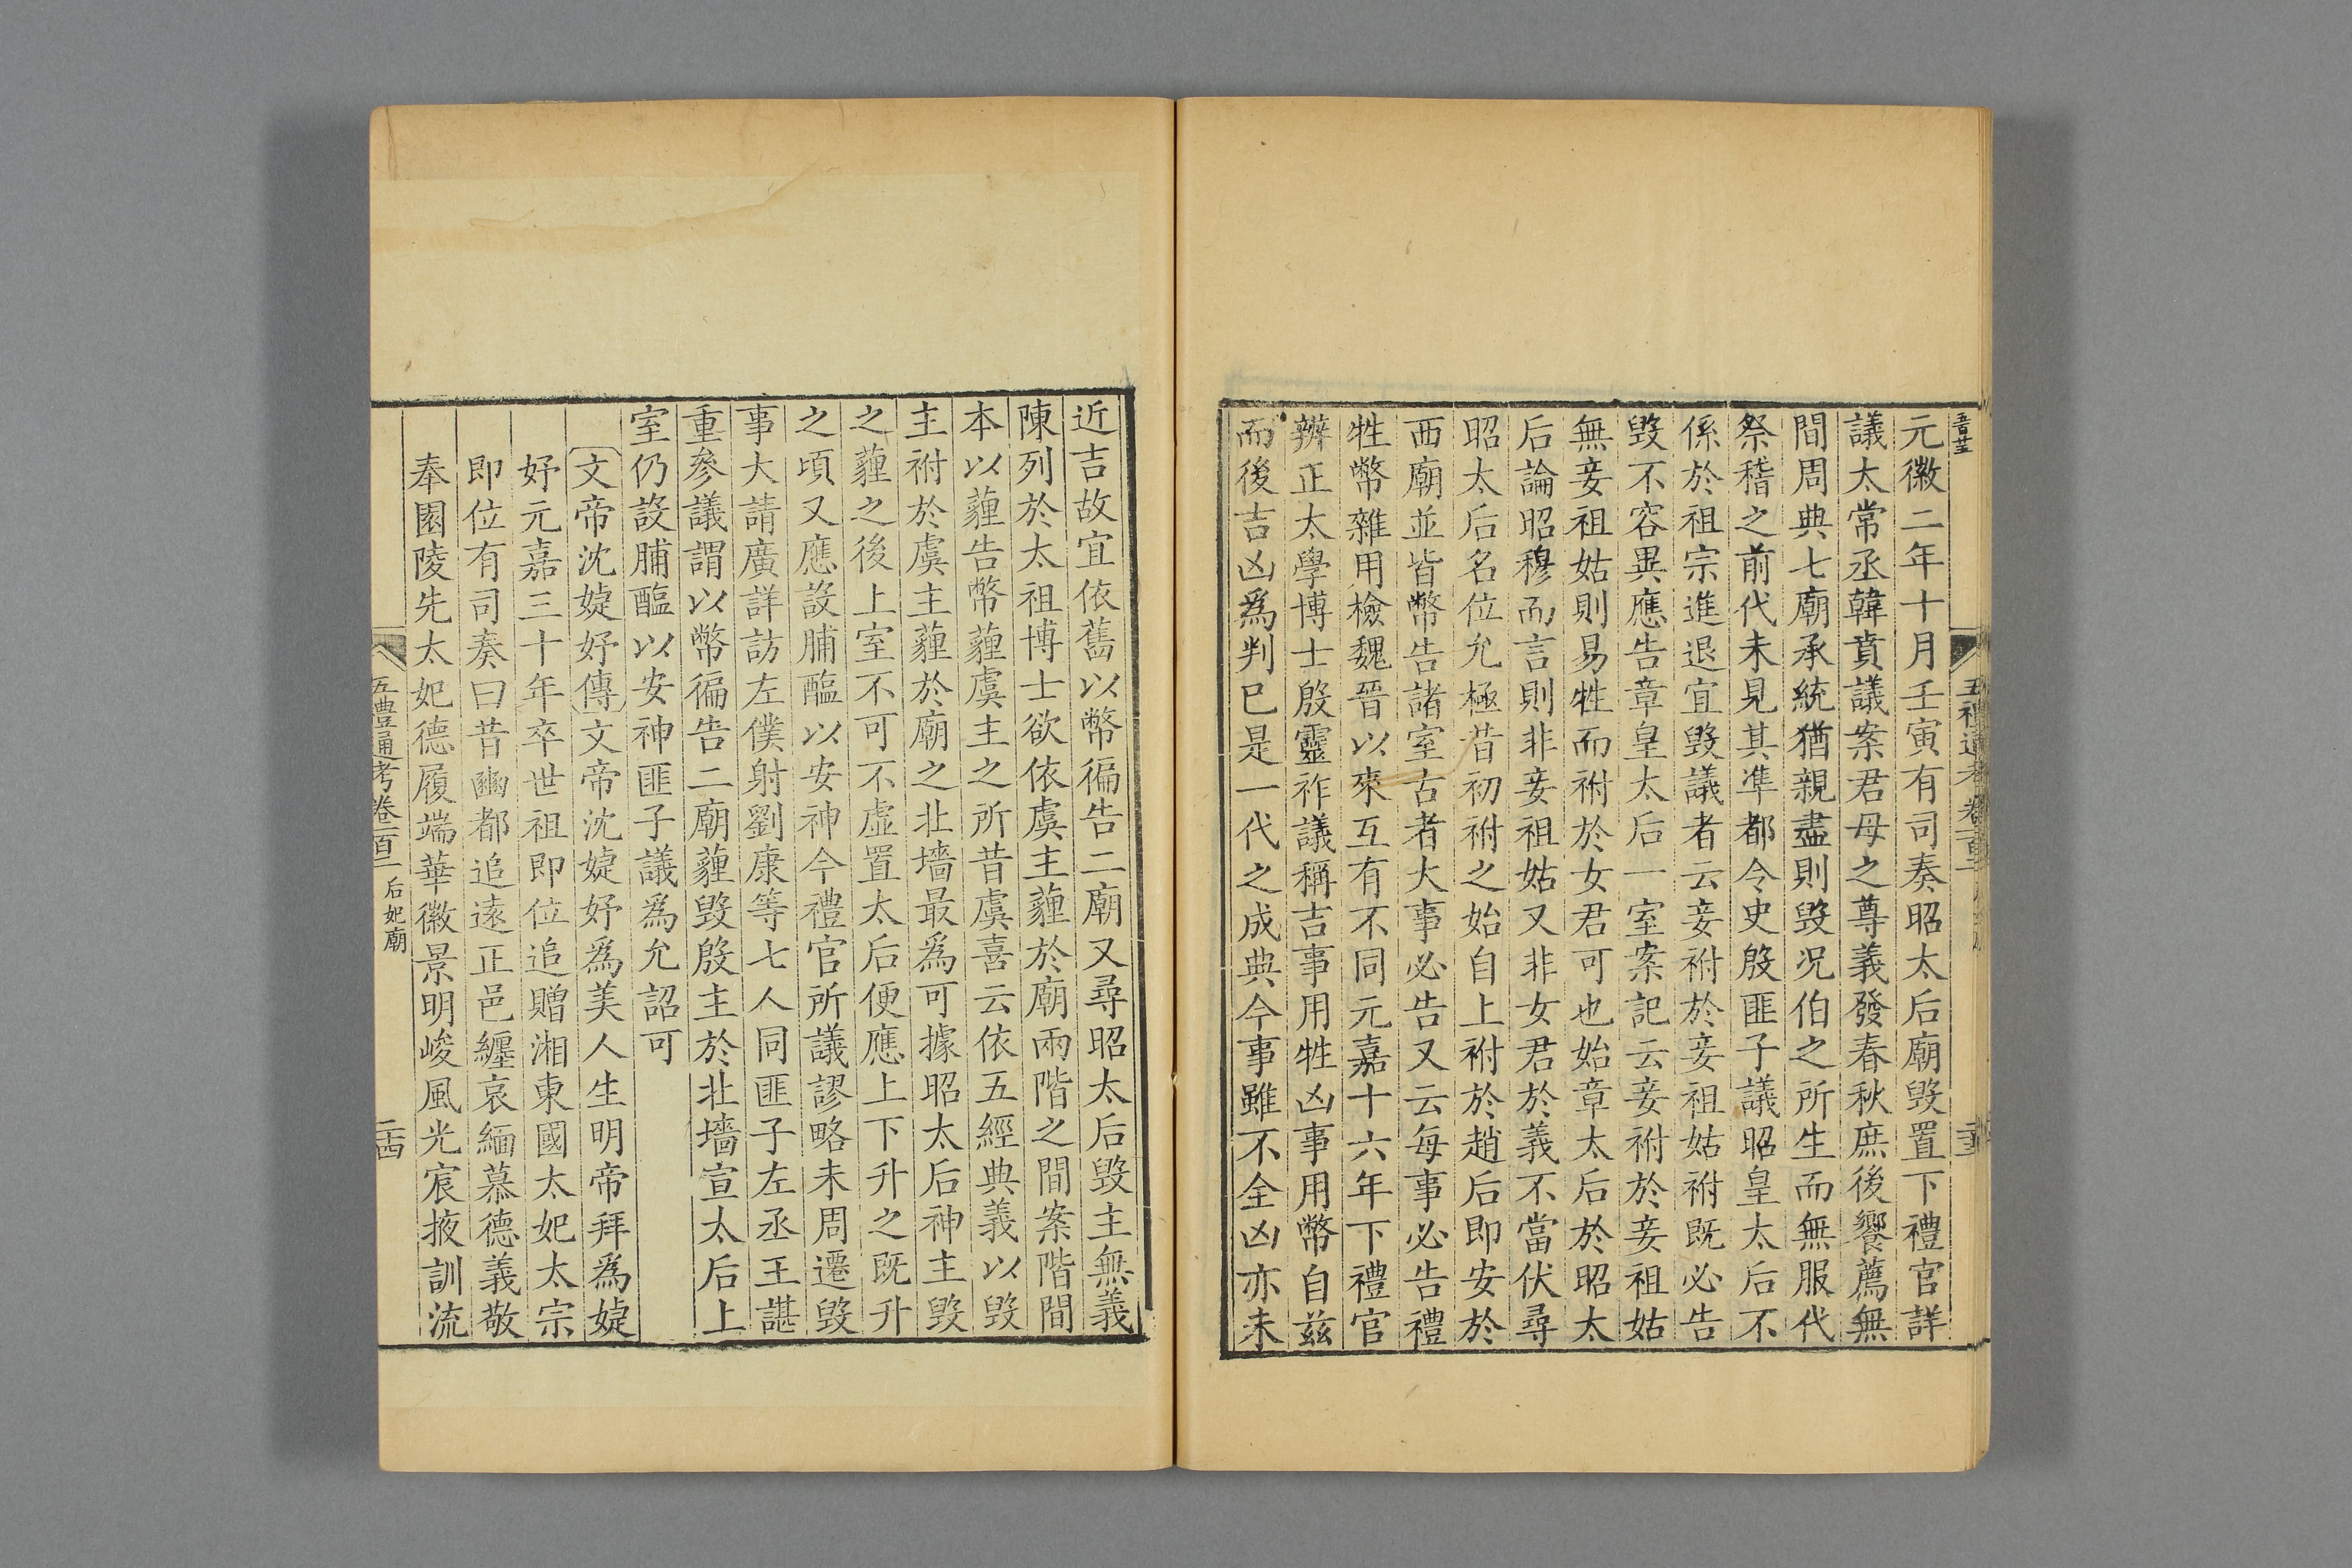 元徽二年十月壬寅有司奏昭太后廟毀置下禮官詳
議太常丞韓賁議案君母之尊義發春秋庶後饗薦無
間周典七廟承統猶親盡則毀况伯之所生而無服代
祭稽之前代未見其凖都令史殷匪子議昭皇太后不
係於祖宗進退宜毀議者云妾祔於妾祖姑祔既必告
毀不容異應告章皇太后一室案記云妾祔於妾祖姑
無妾祖姑則易牲而祔於女君可也始章太后於昭太
后論昭穆而言則非妾祖姑又非女君於義不當伏尋
昭太后名位允極昔初祔之始自上祔於趙后即安於
西廟並皆幣告諸室古者大事必告又云每事必告禮
牲幣雜用檢魏晉以來互有不同元嘉十六年下禮官
辨正太學博士殷靈祚議稱吉事用牲凶事用幣自兹
而後吉凶爲判已是一代之成典今事雖不全凶亦未
近吉故宜依舊以幣徧告二廟又尋昭太后毀主無義
陳列於太祖博士欲依虞主薶於廟兩階之間案階間
本以薶告幣薶虞主之所昔虞喜云依五經典義以毀
主祔於虞主薶於廟之北墻最爲可據昭太后神主毀
之薶之後上室不可不虚置太后便應上下升之既升
之頃又應設脯醢以安神今禮官所議謬略未周遷毀
事大請廣詳訪左僕射劉康等七人同匪子左丞王諶
重參議謂以幣徧告二廟薶毀殷主於北墻宣太后上
室仍設脯醢以安神匪子議爲允詔可
文帝沈婕妤傳文帝沈婕妤爲美人生明帝拜爲婕
妤元嘉三十年卒世祖即位追贈湘東國太妃太宗
即位有司奏曰昔豳都追遠正邑纏哀緬慕德義敬
奉園陵先太妃德履端華徽景明峻風光宸掖訓流
五禮通考卷一百二 后妃廟 二十四